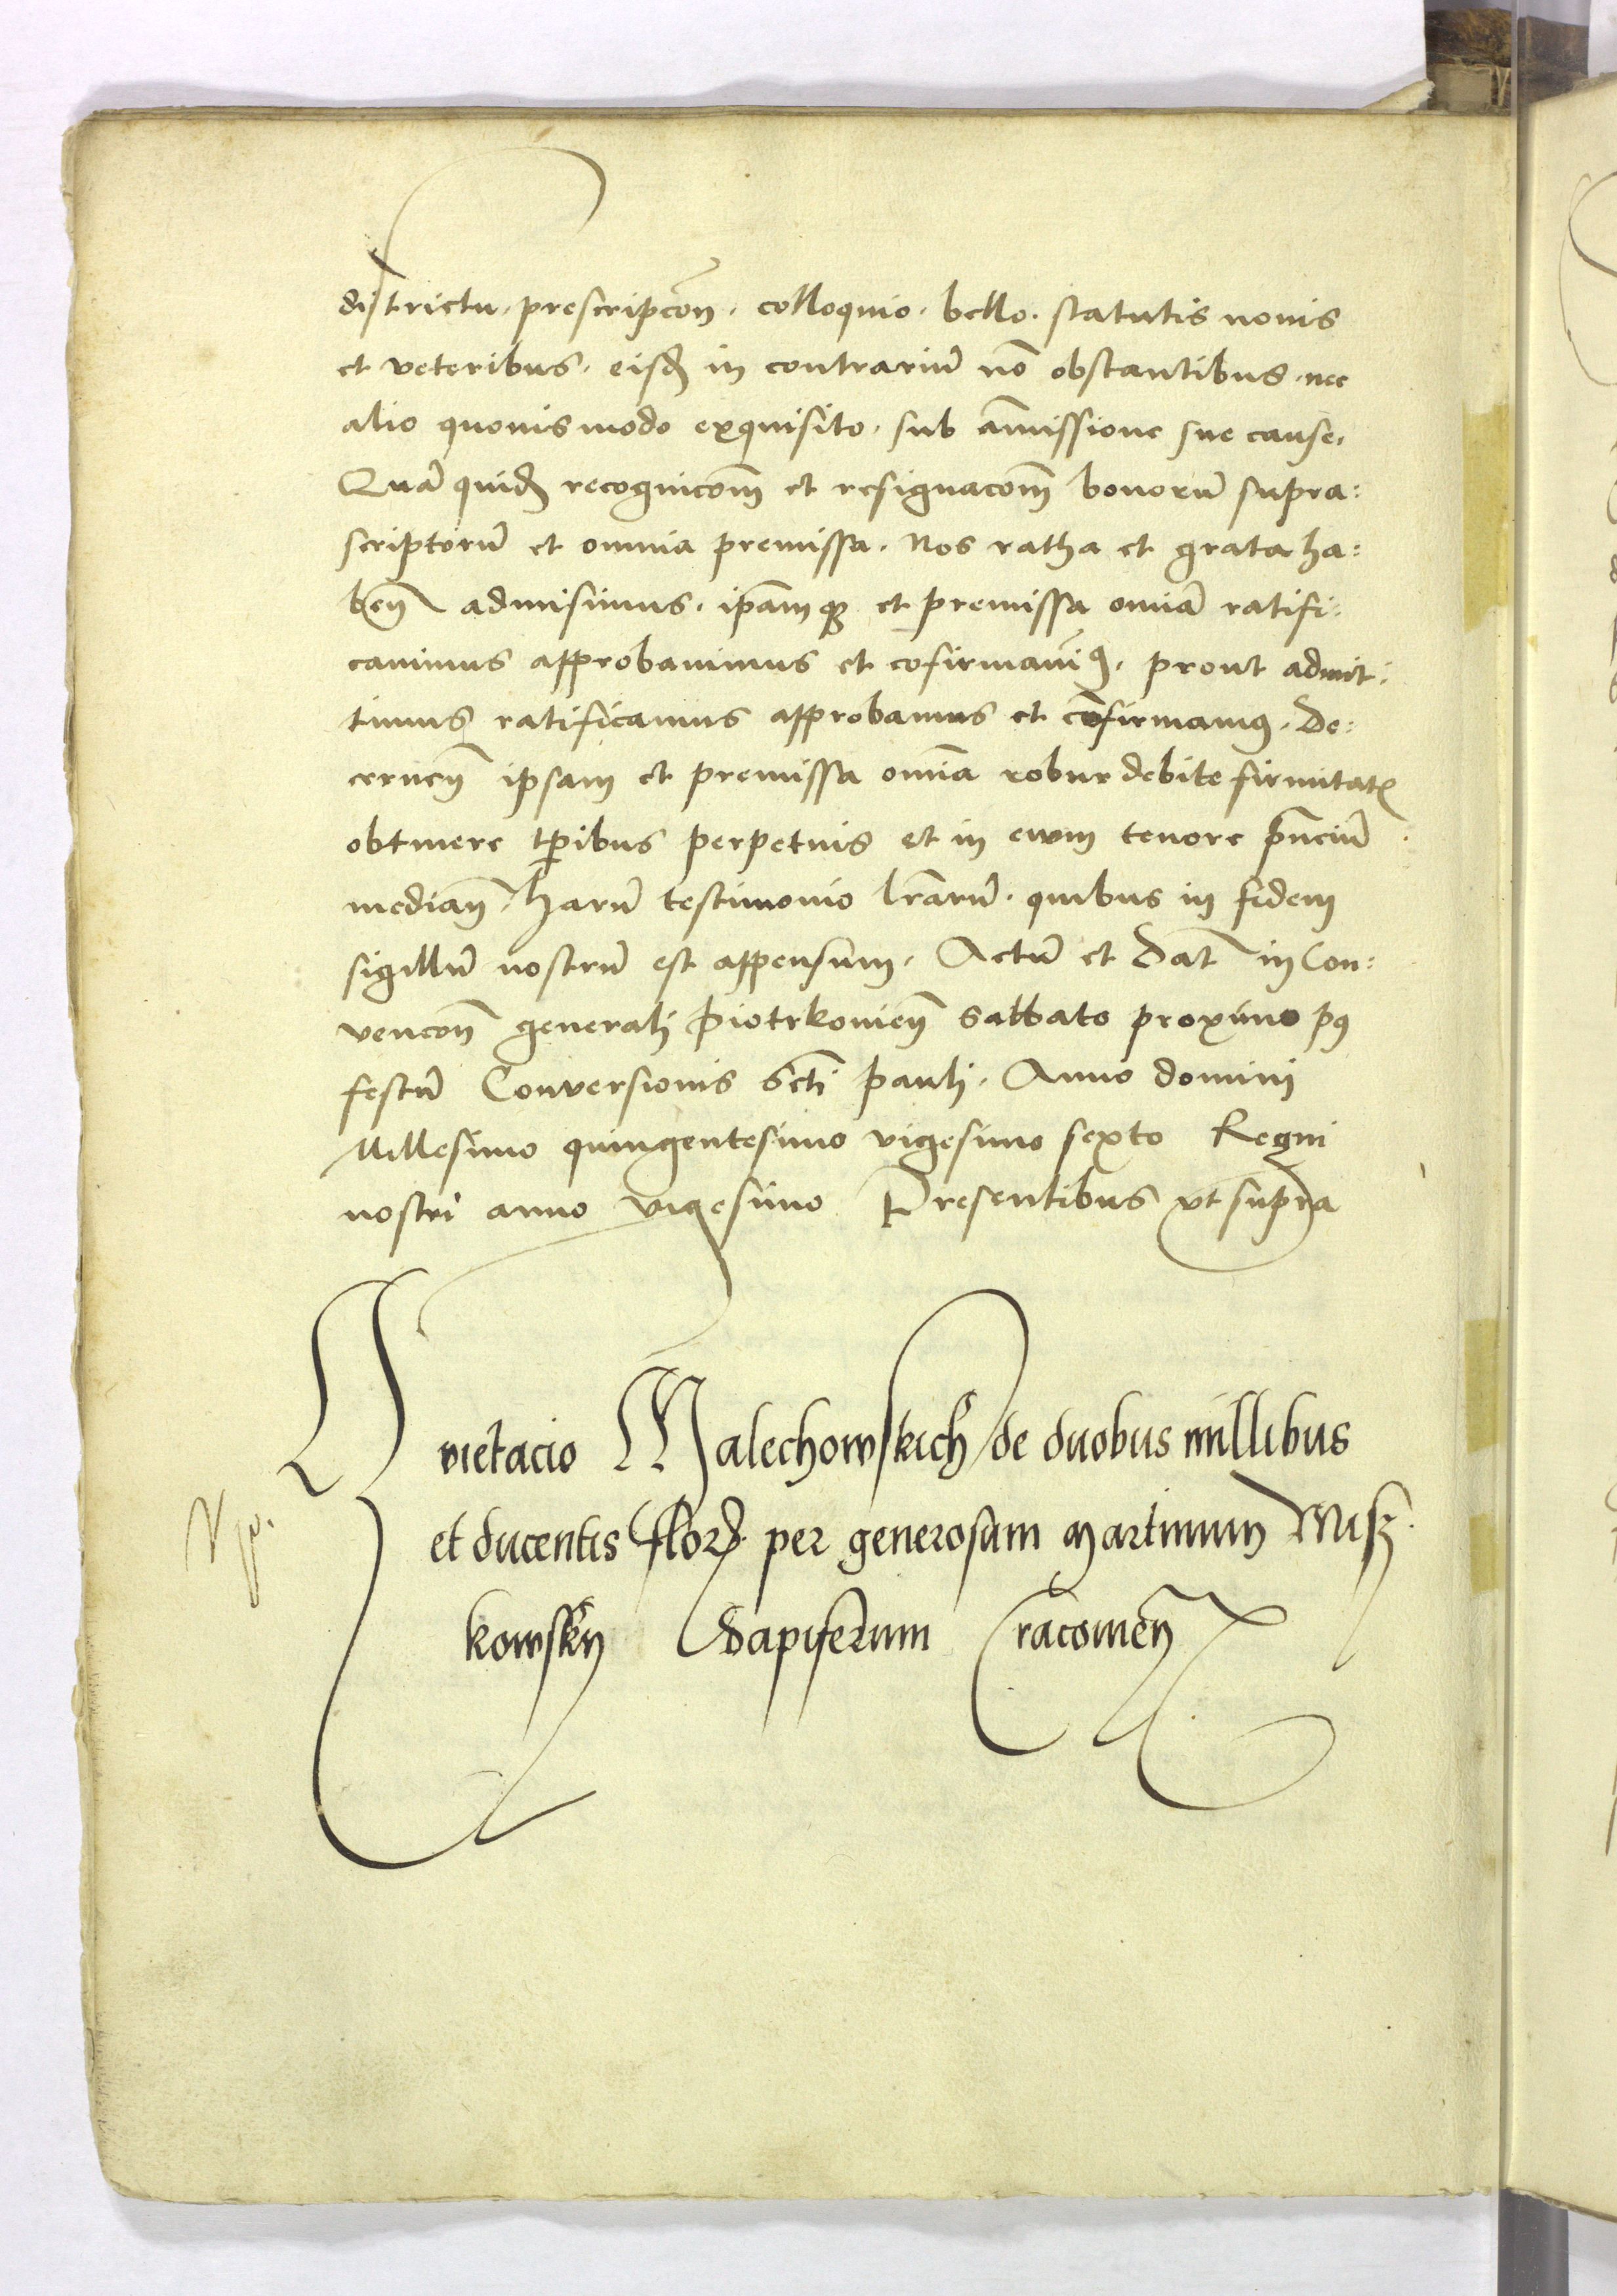 districtu. prescripcōn. colloquio. bello. statutis novis
et veteribus. eisd in contrariū nō obstantibus. nec
alio quovismodo exquisito. sub āmissione sue cause.
Quā quid recognicōm et resignacōm bonorū supra:
scriptorū et omnia premissa. Nos ratha et grata ha:
beñ admisimus. ip̄amqꝫ et premissa om̄ia ratifi:
cavimus approbavimus et cōfirmavimꝰ. prout admit:
timus ratificamus approbamus et confirmamꝰ. De:
cerneñ ipsam et premissa om̄ia robur debite firmitatꝭ
obtinere tp̄ibus perpetuis et in ewm tenore p̄nciū
mediañ. harū testimonio lr̄arū. quibus in fidem
sigillū nostrū est appensum. Actū et Dat̄ in Con:
vencōn generali Piotrkovieñ Sabbato proximo pꝰ
festū Conversionis Scti Pauli. Anno domini
Millesimo quingentesimo vigesimo sexto Regni
nostri anno vigesimo Presentibus vt supra
Quietacio Malechowskich de duobus millibus
et ducentis flor. per generosum Martinum Misz
kowsky dapiferum Cracovieñ